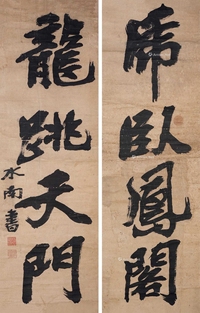 虎臥鳳閣
龍跳天門
水南書